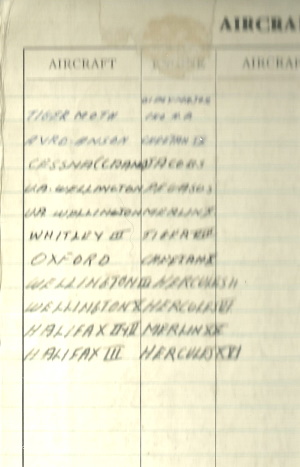 AIRCRA
AIRCRAFT ENGINE AIRCRA
TIGER MOTH
AVRO ANSON CHEETAH IX
CESSNA (CRANE) JACOBS
VA. WELLINGTON PEGASUS
VA WELLINGTON MERLIN X
WHITLEY III TIGER VIII
OXFORD CHEETAH X
WELLINGTON III HERCULES II
WELLINGTON X HERCULES VI
HALIFAX II+V MERLIN XX
HALIFAX III HERCULES XVI